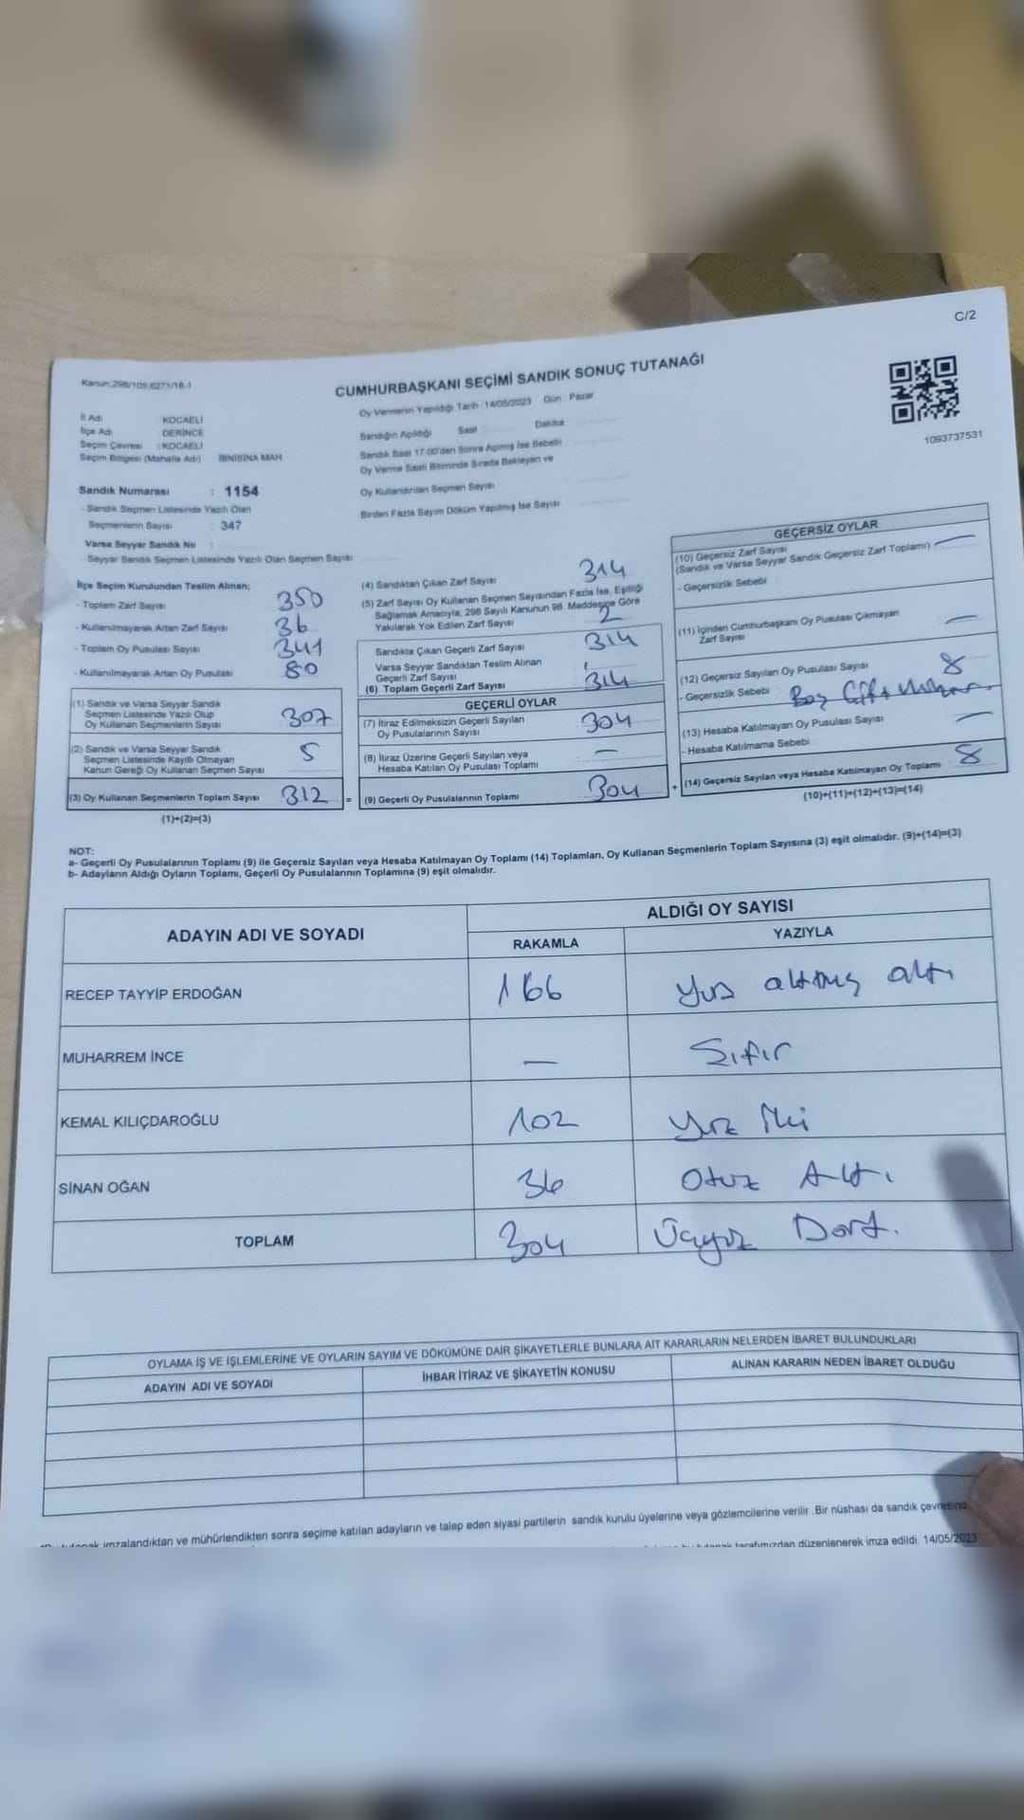 C/2
Kanun:298/105,6271/18-1
CUMHURBAŞKANI SEÇİMİ SANDIK SONUÇ TUTANAĞI
1093737531
İl Adı KOCAELİ
İlçe Adı DERİNCE
Seçim Çevresi : KOCAELİ
Seçim Bölgesi (Mahalle Adı)
Sandık Numarası : 1154
Sandık Seçmen Listesinde Yazılı Olan
Seçmenlerin Sayısı 347
Varsa Seyyar Sandık No
Seyyar Sandık Seçmen Listesinde Yazılı Olan Seçmen Sayısı
Oy Vermenin Yapıldığı Tarih :14/05/2023 Gün : Pazar
Sandığın Açıldığı Saat Dakika
Sandık Saat 17:00'den Sonra Açılmış İse Sebebi
Oy Verme Saati Bitiminde Sırada Bekleyen ve
Oy Kullandırılan Seçmen Sayısı
Birden Fazla Sayım Döküm Yapılmış İse Sayısı
İlçe Seçim Kurulundan Teslim Alınan;
- Toplam Zarf Sayısı 350
- Kullanılmayarak Artan Zarf Sayısı 36
- Toplam Oy Pusulası Sayısı 341
- Kullanılmayarak Artan Oy Pusulası 80
(1) Sandık ve Varsa Seyyar Sandık
Seçmen Listesinde Yazılı Olup
Oy Kullanan Seçmenlerin Sayısı 307
(2) Sandık ve Varsa Seyyar Sandık
Seçmen Listesinde Kayıtlı Olmayan
Kanun Gereği Oy Kullanan Seçmen Sayısı 5
(3) Oy Kullanan Seçmenlerin Toplam Sayısı 312 =
(1)+(2)=(3)
(4) Sandıktan Çıkan Zarf Sayısı 314
(5) Zarf Sayısı Oy Kullanan Seçmen Sayısından Fazla İse, Eşitliği
Sağlamak Amacıyla, 298 Sayılı Kanunun 98. Maddesine Göre
Yakılarak Yok Edilen Zarf Sayısı 2
Sandıkta Çıkan Geçerli Zarf Sayısı 314
Varsa Seyyar Sandıktan Teslim Alınan
Geçerli Zarf Sayısı
(6) Toplam Geçerli Zarf Sayısı 314
GEÇERLİ OYLAR
(7) İtiraz Edilmeksizin Geçerli Sayılan
Oy Pusulalarının Sayısı 304
(8) İtiraz Üzerine Geçerli Sayılan veya
Hesaba Katılan Oy Pusulası Toplamı —
(9) Geçerli Oy Pusulalarının Toplamı 304 +
GEÇERSİZ OYLAR
(10) Geçersiz Zarf Sayısı
(Sandık ve Varsa Seyyar Sandık Geçersiz Zarf Toplamı) —
- Geçersizlik Sebebi
(11) İçinden Cumhurbaşkanı Oy Pusulası Çıkmayan
Zarf Sayısı —
(12) Geçersiz Sayılan Oy Pusulası Sayısı 8
- Geçersizlik Sebebi Boş
(13) Hesaba Katılmayan Oy Pusulası Sayısı —
- Hesaba Katılmama Sebebi
(14) Geçersiz Sayılan veya Hesaba Katılmayan Oy Toplamı 8
(10)+(11)+(12)+(13)=(14)
NOT:
a- Geçerli Oy Pusulalarının Toplamı (9) ile Geçersiz Sayılan veya Hesaba Katılmayan Oy Toplamı (14) Toplamları, Oy Kullanan Seçmenlerin Toplam Sayısına (3) eşit olmalıdır. (9)+(14)=(3)
b- Adayların Aldığı Oyların Toplamı, Geçerli Oy Pusulalarının Toplamına (9) eşit olmalıdır.
ADAYIN ADI VE SOYADI ALDIĞI OY SAYISI
RAKAMLA YAZIYLA
RECEP TAYYİP ERDOĞAN 166 Yüz altmış altı
MUHARREM İNCE — Sıfır
KEMAL KILIÇDAROĞLU 102 Yüz İki
SİNAN OĞAN 36 Otuz Altı
TOPLAM 304 Üçyüz Dört.
OYLAMA İŞ VE İŞLEMLERİNE VE OYLARIN SAYIM VE DÖKÜMÜNE DAİR ŞİKAYETLERLE BUNLARA AİT KARARLARIN NELERDEN İBARET BULUNDUKLARI
ADAYIN ADI VE SOYADI İHBAR İTİRAZ VE ŞİKAYETİN KONUSU ALINAN KARARIN NEDEN İBARET OLDUĞU
imzalandıktan ve mühürlendikten sonra seçime katılan adayların ve talep eden siyasi partilerin sandık kurulu üyelerine veya gözlemcilerine verilir. Bir nüshası da sandık
tarafımızdan düzenlenerek imza edildi. 14/05/2023